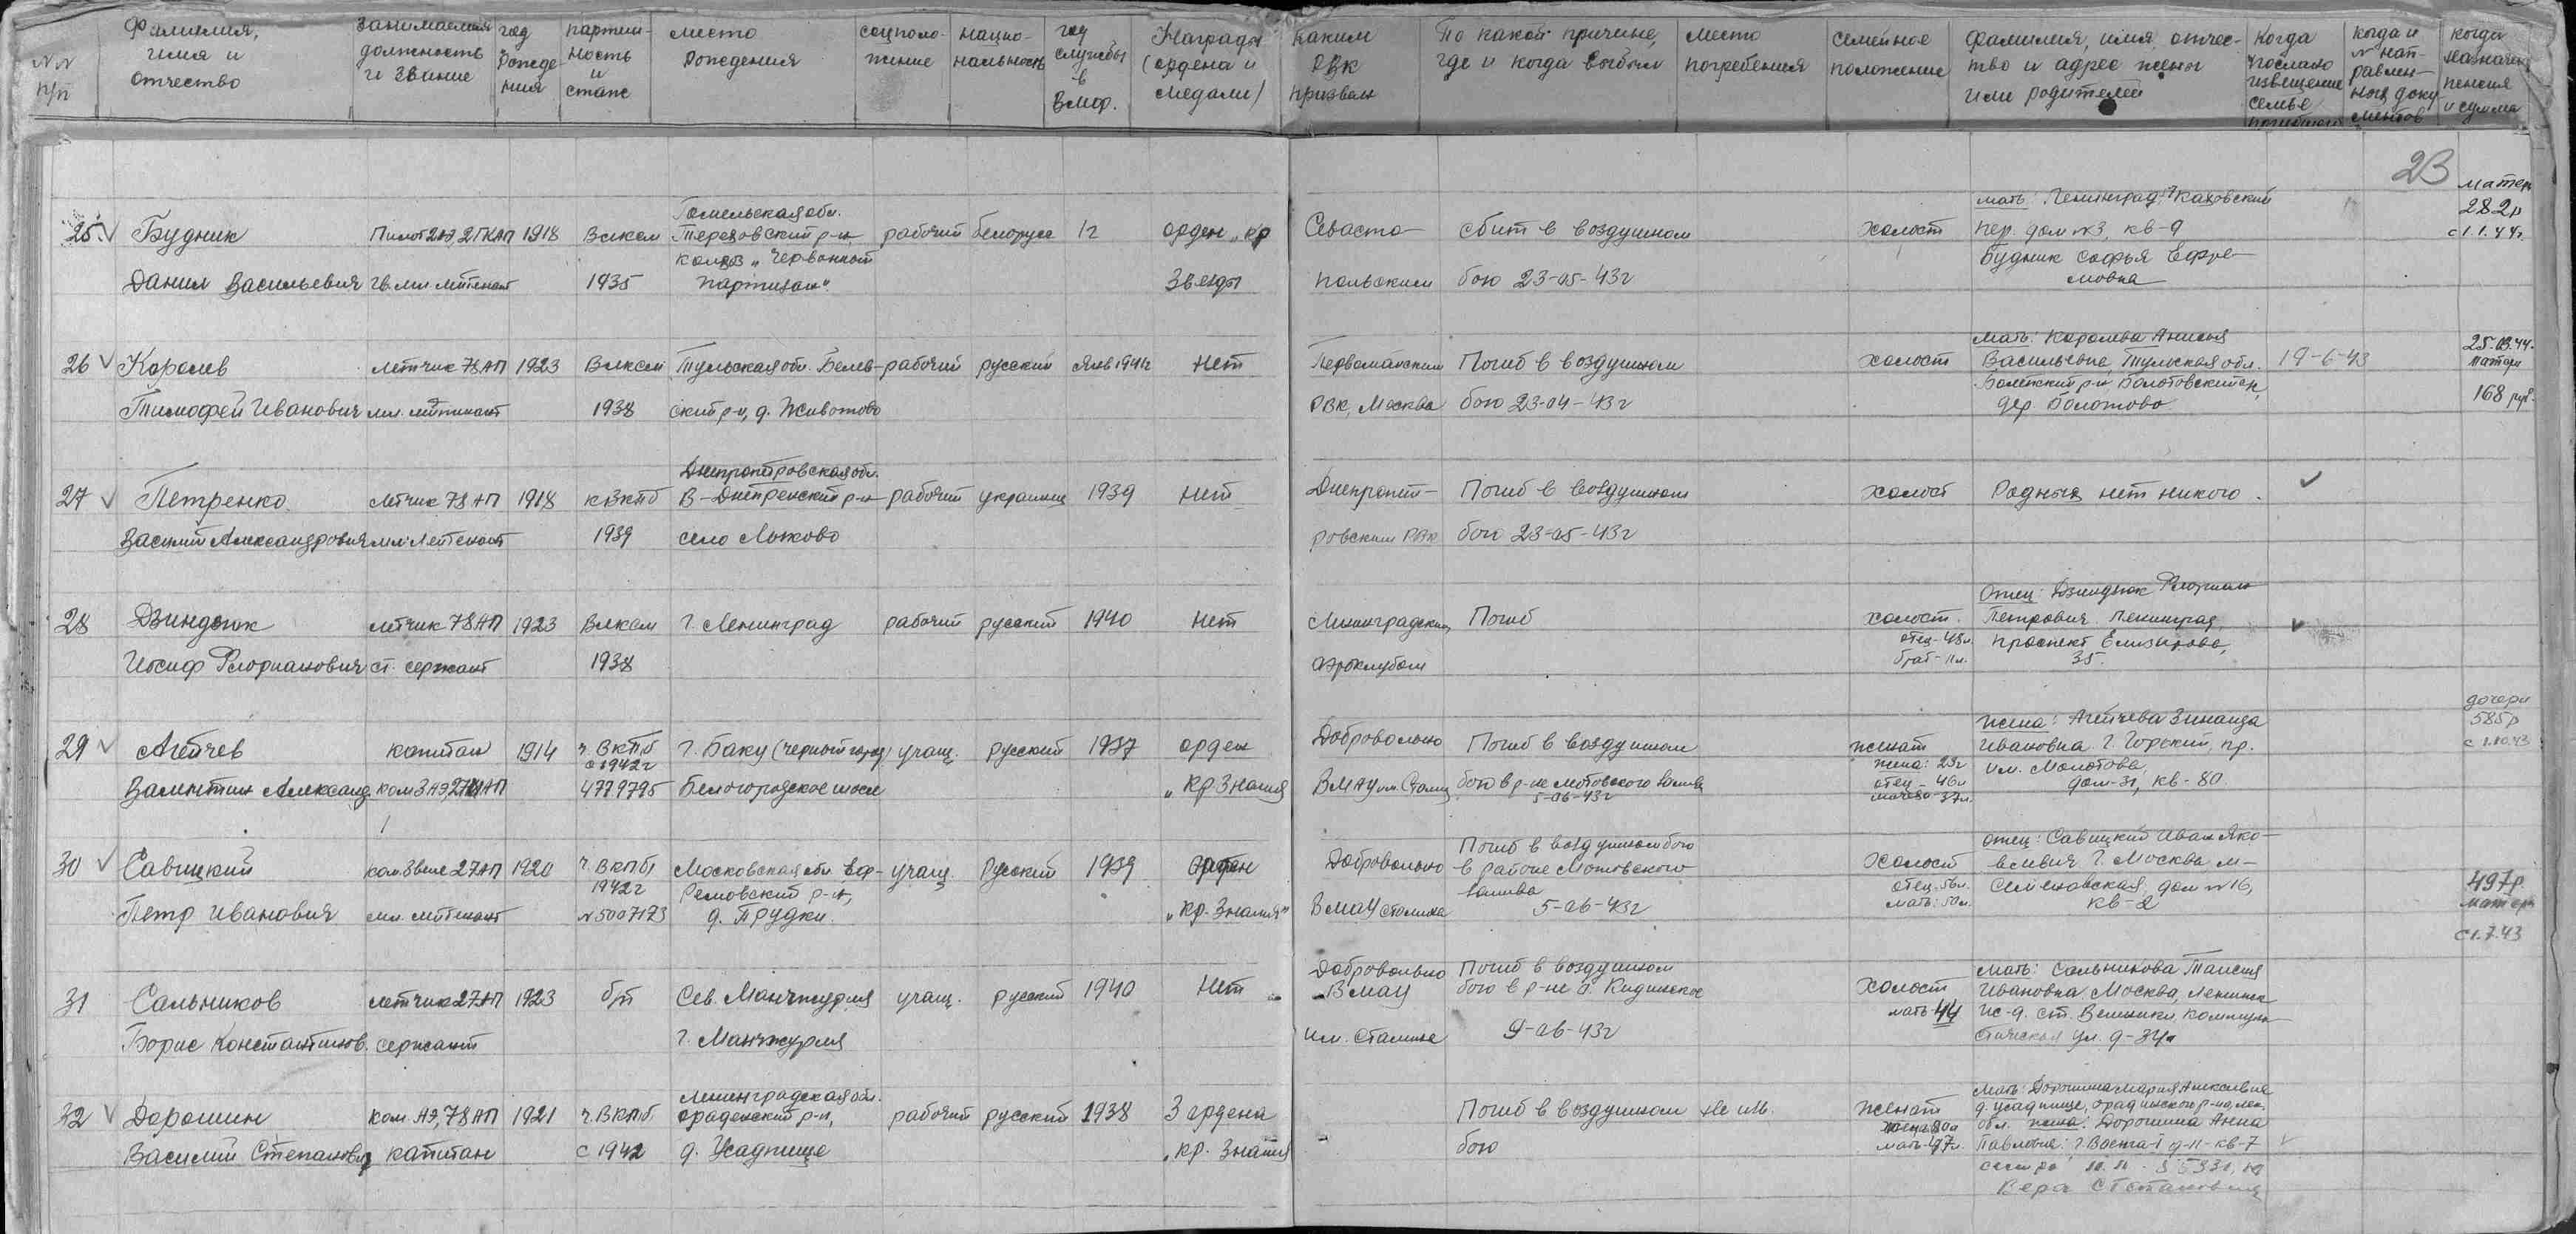 №№ п/п
Фамилия, имя и отчество
Занимаемая должность и звание
год рождения
партийность и стаж
место рождения
соцположение
национальность
год службы в ВМФ.
Награды (ордена и медали)
Каким РВК призван
По какой причине, где и когда выбыл
место погребения
семейное положение
Фамилия, имя, отчество и адрес жены или родителей
Когда послано извещение семье
когда и № направления документов
когда назначена пенсия и сумма
23
25. Будник Пилот 2АЭ, 2ГКАП 1918 Влксм Гомельская обл. рабочий белорусс 1г орден „Кр Севасто- сбит в воздушном холост мать: Ленинград, матери
Данил Васильевич гв. мл. лейтенант 1935 колхоз „Червонный партизан". Звезды польским бою 23-05-43г пер. дом №3, кв-9 282р
Будник Софья Ефре- с 1.1.44г.
мовна
26 Королев летчик 78АП 1923 Влксм Тульская обл. Белев- рабочий русский Янв 1941г Нет Первомайским Погиб в воздушном холост мать: Королева Анисья 19-6-43 25-03.44.
Тимофей Иванович мл. лейтенант 1938 ский р-н, д. Животово РВК, Москва бою 23-04-43г Васильевна Тульская обл. матери
дер. Болотово 168 руб.
27 Петренко летчик 78АП 1918 кВКПб Днепропетровская обл. рабочий украинец 1939 Нет Днепропет- Погиб в воздушном холост Родных нет никого.
Василий Александрович мл. лейтенант 1939 село ровским РВК бою 23-05-43г
28 Дзиндзюк летчик 78АП 1923 Влксм г. Ленинград рабочий русский 1940 Нет Ленинградским Погиб холост. Отец: Дзиндзюк Флориан
Иосиф Флорианович ст. сержант 1938 аэроклубом отец-48л. Петрович Ленинград
брат-11л. проспект Елизарова,
35.
29 Агейчев капитан 1914 ч. ВКПб г. Баку (черный город) учащ. русский 1937 орден Добровольно Погиб в воздушном женат жена: Агейчева Зинаида дочери
с 1942г 585р
Валентин Александ ком 3 АЭ, 27ИАП 4779795 Белогородское шоссе „Кр Знамя ВМАУ им. Сталин бою в р-не Мотовского залива жена: 23г Ивановна г. Горький, пр. с 1.10.43
5-06-43г отец-46л им. Молотова,
мачеха-37л. дом-31, кв-80.
30 Савицкий ком. звена 27АП 1920 ч. ВКПб Московская обл. учащ. Русский 1939 орден Добровольно Погиб в воздушном бою Холост отец: Савицкий Иван Яко-
1942г р-н, в районе Мотовского отец-56л. влевич г. Москва м- 497р.
Петр Иванович мл. лейтенант №5007173 д. Прудки. „Кр. Знамя" ВМАУ Сталина залива мать: 50л. Семеновская, дом №16, матери
5-06-43г кв-2 с 1.7.43
31 Сальников летчик 27АП 1923 б/п Сев. Манчжурия учащ. русский 1940 Нет Добровольно Погиб в воздушном Холост мать: Сальникова Таисия
ВМАУ бою в р-не о. Кидинское мать-44 Ивановна Москва,
Борис Константинов. сержант г. Манчжурия им. Сталина 9-06-43г ж-д. ст.
ул. д-34а
32 Дорошин ком. АЭ, 78АП 1921 ч. ВКПб Ленинградская обл. рабочий русский 1938 3 ордена Погиб в воздушном женат мать: Дорошина Мария Алексеевна
р-н, д. Усадище,
Василий Степанович капитан с 1942 д. Усадище „Кр. Знамя бою мать-47л. обл. жена: Дорошина Анна
Павловна: г. Ваенга-1 д-11-кв-7
сестра
Вера Степановна